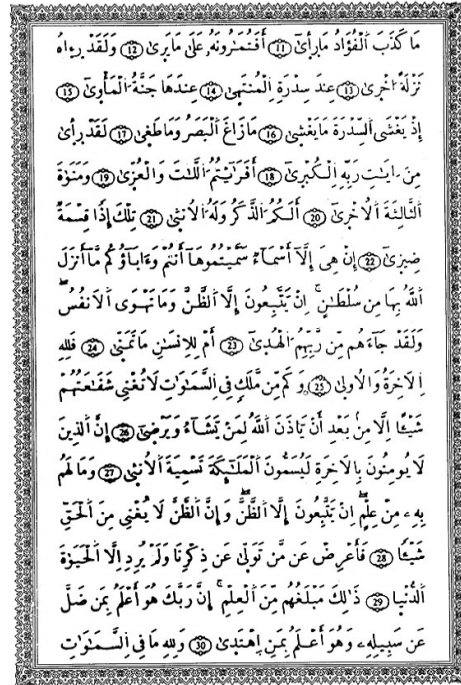 مَا كَذَبَ اَ۬لْفُؤَادُ مَا رَأ۪ىٰٓ ⑪ أَفَتُمَٰرُونَهُۥ عَلَىٰ مَا يَر۪ىٰ ⑫ وَلَقَدْ ر۪ء۪اهُ
نَزْلَةً ا۟خْر۪ىٰ ⑬ عِندَ سِدْرَةِ اِ۬لْمُنتَه۪ىٰ ⑭ عِندَهَا جَنَّةُ اُ۬لْمَأْو۪ىٰٓ ⑮
إِذْ يَغْشَى اَ۬لسِّدْرَةَ مَا يَغْش۪ىٰ ⑯ مَا زَاغَ اَ۬لْبَصَرُ وَمَا طَغ۪ىٰ ⑰ لَقَدْ ر۪أ۪ىٰ
مِنَ ايَٰتِ رَبِّهِ اِ۬لْكُبْر۪ىٰٓ ⑱ أَفَرَٰٓيْتُمُ اُ۬للَّٰتَ وَالْعُزّ۪ىٰ ⑲ وَمَنَوٰةَ
اَ۬لثَّالِثَةَ اَ۬لُاخْر۪ىٰٓ ⑳ أَلَكُمُ اُ۬لذَّكَرُ وَلَهُ اُ۬لُانث۪ىٰ ㉑ تِلْكَ إِذاً قِسْمَةٌ
ضِيز۪ىٰٓ ㉒ إِنْ هِيَ إِلَّآ أَسْمَآءٌ سَمَّيْتُمُوهَآ أَنتُمْ وَءَابَآؤُكُم مَّآ أَنزَلَ
اَ۬للَّهُ بِهَا مِن سُلْطَٰنٍ اِنْ يَّتَّبِعُونَ إِلَّا اَ۬لظَّنَّ وَمَا تَهْوَى اَ۬لَانفُسُ
وَلَقَدْ جَآءَهُم مِّن رَّبِّهِمُ اُ۬لْهُد۪ىٰٓ ㉓ أَمْ لِلِانسَٰنِ مَا تَمَنّ۪ىٰ ㉔ فَلِلهِ
اِ۬لَاخِرَةُ وَالُاول۪ىٰ ㉕ وَكَم مِّن مَّلَكٍ فِي اِ۬لسَّمَٰوَٰتِ لَا تُغْنِي شَفَٰعَتُهُمْ
شَيْـًٔا اِلَّا مِنۢ بَعْدِ أَنْ يَّاذَنَ اَ۬للَّهُ لِمَنْ يَّشَآءُ وَيَرْض۪ىٰٓ ㉖ إِنَّ اَ۬لذِينَ
لَا يُومِنُونَ بِالَاخِرَةِ لَيُسَمُّونَ اَ۬لْمَلَٰٓئِكَةَ تَسْمِيَةَ اَ۬لُانث۪ىٰ ㉗ وَمَا لَهُم
بِهِۦ مِنْ عِلْمٍ اِنْ يَّتَّبِعُونَ إِلَّا اَ۬لظَّنَّ وَإِنَّ اَ۬لظَّنَّ لَا يُغْنِي مِنَ اَ۬لْحَقِّ
شَيْـًٔا ㉘ فَأَعْرِضْ عَن مَّن تَوَلّ۪ىٰ عَن ذِكْرِنَا وَلَمْ يُرِدِ اِلَّا اَ۬لْحَيَوٰةَ
اَ۬لدُّنْيَا ㉙ ذَٰلِكَ مَبْلَغُهُم مِّنَ اَ۬لْعِلْمِ إِنَّ رَبَّكَ هُوَ أَعْلَمُ بِمَن ضَلَّ
عَن سَبِيلِهِۦ وَهُوَ أَعْلَمُ بِمَنِ اِ۪هْتَد۪ىٰ ㉚ وَلِلهِ مَا فِي اِ۬لسَّمَٰوَٰتِ